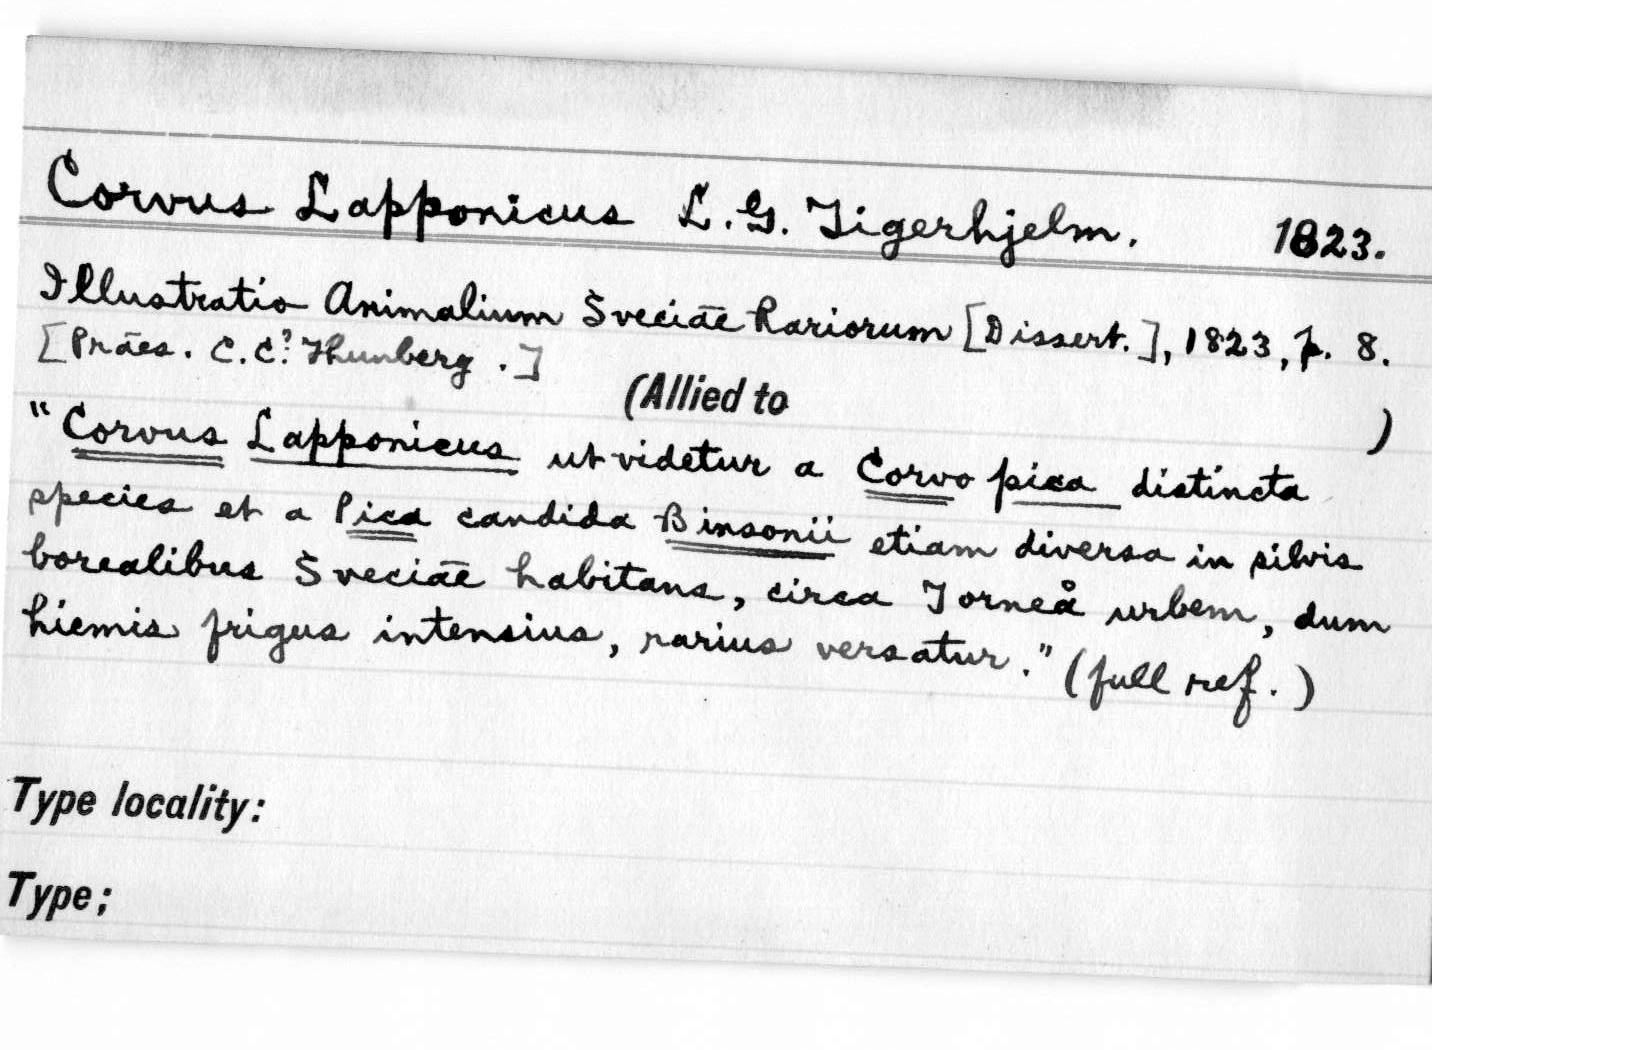 Corvus Lapponicus L. G. Tigerhjelm. 1823.
Illustratio Animalium Sveciae Rariorum [Dissert.], 1823, p. 8.
[Praes. C. C.? Thunberg.]
(Allied to )
"Corvus Lapponicus ut videtur a Corvo pica distincta
species et a Pica candida Binsonii etiam diversa in silvis
borealibus Sveciae habitans, circa Torneå urbem, dum
hiemis frigus intensius, rarius versatur." (full ref.)
Type locality:
Type;